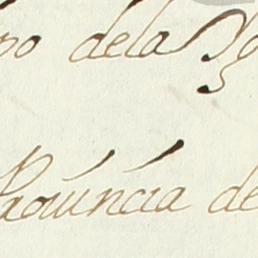 po dela
Prouincia de